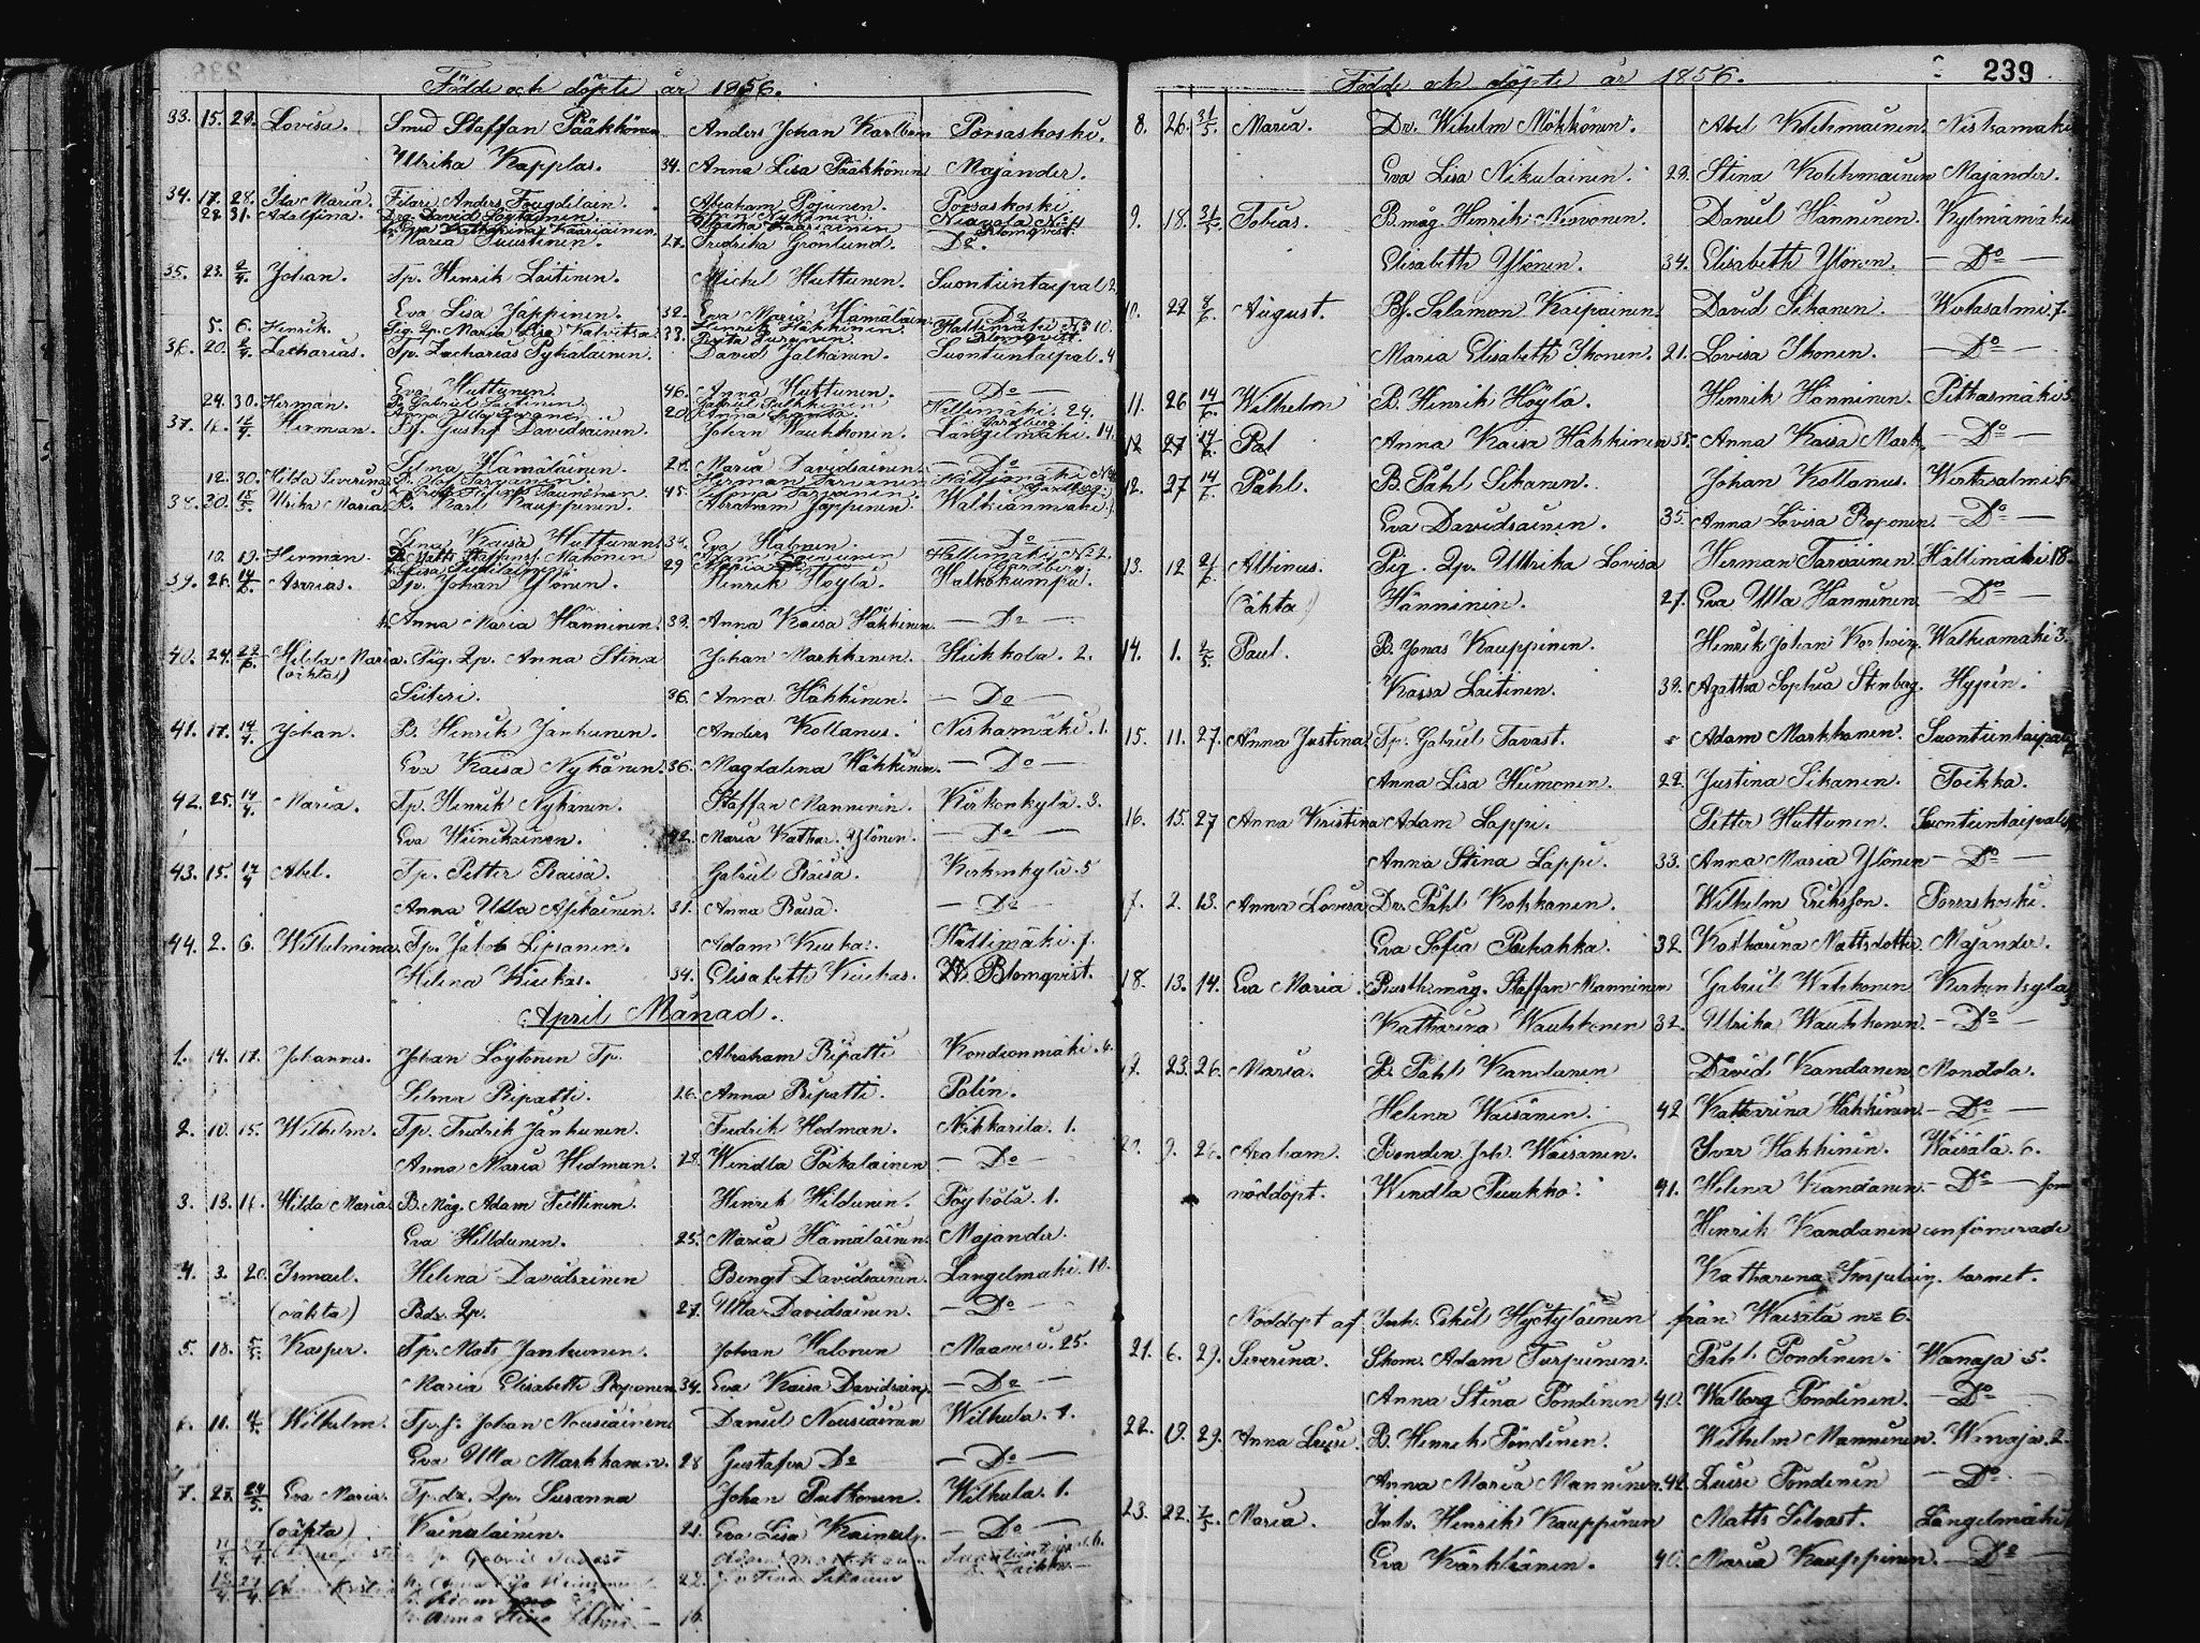 Födde och döpte år 1856.
33. 15. 24. Lovisa. Smed Staffan Pääkkönen Anders Johan Karlbom Porsaskoski.
Ulrika Kapplas. 34. Anna Lisa Pääkkönen Majander.
34. 17. 28. Ida Maria. Filari Anders Fougdilain. Abraham Pojunen. Porsaskoski.
28. 31. Adolfina. Drg. David Löytäinen. Niavala No 4
Maria Suustinen. 27. Fredrika Grönlund. Do.
35. 23. 2/4. Johan. Tp. Henrik Laitinen. Michel Huttunen. Suontientaipal 2.
Eva Lisa Jäppinen. 32. Eva Maria Hämäläin. Do
5. 6. Henrik. Pig. Qp. Maria Lisa Kalvitsa. 33. Henrik Häkkinen. Hällimäki No 10.
36. 20. 2/4. Zacharias. Tp. Zacharias Pykäläinen. David Jalkanen. Suontientaipal. 4
Eva Huttunen. 46. Anna Huttunen. — Do —
24. 30. Herman. Gabriel Laitinen. 20. Gabriel Pulkkinen Hällimäki. 24.
37. 16. 12/4. Herman. Bf. Gustaf Davidsainen. Johan Waukkonen. Längelmäki. 14.
Selma Hämäläinen. 28. Maria Davidsainen. — Do —
12. 30. Hilda Severina. B. Olof Tarvanen. 45. Herman Tarvanen
38. 30. 12/5. Ulrika Maria. B. Karl Kauppinen. Abraham Jäppinen. Walkianmäki.
Lena Kaisa Huttunen. 34. Eva Halonen. — Do —
10. 19. Herman. Matts Staffanss. Mähönen 29 Hällimäki No 2.
39. 26. 14/6. Asarias. Tp. Johan Ylönen. Henrik Höylä. Halkokumpu.
Anna Maria Hänninen. 38. Anna Kaisa Häkkinen. — Do —
40. 24. 22/6. Hilda Maria. Pig. Qp. Anna Stina Johan Markkanen. Hiekkola. 2.
(oäkta)
Siiteri. 36. Anna Häkkinen. — Do —
41. 17. 14/4. Johan. B. Henrik Janhunen. Anders Kollanus. Niskamäki. 1.
Eva Kaisa Nykänen. 36. Magdalena Häkkinen. — Do —
42. 25. 14/4. Maria. Tp. Henrik Nykänen. Staffan Manninen. Kirkonkylä. 3.
Eva Wiinikainen. 42. Maria Kathar. Ylönen. — Do —
43. 15. 17/4 Abel. Tp. Petter Räisä. Gabriel Räisä. Kirkonkylä. 5
Anna Ulla Asikainen. 31. Anna Räisä. — Do
44. 2. 6. Wilhelmina. Tp. Jakob Lipsanen. Adam Kiukas. Hällimäki. 7.
Helena Kiukas. 34. Elisabeth Kiukas. W. Blomqvist.
April Månad.
1. 14. 17. Johannes. Johan Löytönen Tp. Abraham Ripatti Kondionmäki. 6.
Selma Ripatti. 26. Anna Ripatti. Polin.
2. 10. 15. Wilhelm. Tp. Fredrik Janhunen. Fredrik Hedman. Nikkarila. 1.
Anna Maria Hedman. 28. Wendla Poikalainen — Do —
3. 13. 16. Hilda Maria. B. Måg. Adam Tiettinen. Henrik Hildunen. Pöyhölä. 1.
Eva Hilldunen. 25. Maria Hämäläinen. Majander.
4. 3. 20. Ismael. Helena Davidsainen Bengt Davidsainen. Längelmäki. 10.
(oäkta) Bdr. Qp. 27. Ulla Davidsainen. — Do —
5. 18. 5/5. Kasper. Tp. Mats Janhunen. Johan Halonen Maansi. 25.
Maria Elisabeth Roponen 34. Eva Kaisa Davidsain. — Do —
6. 11. 4/5. Wilhelm. Tp. f. Johan Nousiainen Daniel Nousiainen Wilhula. 1.
Eva Ulla Markkan. 28 Gustafva Do — Do —
7. 27. 24/5. Eva Maria. Tp. dr. Qp. Susanna Johan Puttonen. Wilhula. 1.
(oäkta) Kainulainen. 21. Eva Lisa Kainul. — Do —
11/4 27/4 Tp. Gabriel Tavast Adam Markkanen
15/4 27/4 Anna Kristina 22. Justina Sikanen
Anna Stina
239
Födde och döpte år 1856.
8. 26. 31/5. Maria. Dr. Wilhelm Mökkönen. Abel Kolehmainen. Niskamäki
Eva Lisa Nikulainen. 29. Stina Kolehmainen Majander.
9. 18. 31/5. Tobias. B. måg. Henrik Nironen. Daniel Hänninen. Kylmämäki
Elisabeth Ylönen. 34. Elisabeth Ylönen. — Do —
10. 22 8/6. August. Bf. Salamon Kaipainen. David Sikanen. Wirtasalmi 7.
Maria Elisabeth Ihonen. 21. Lovisa Ihonen. — Do —
11. 26 14/6. Wilhelm B. Henrik Höylä. Henrik Hänninen. Pitkasmäki 5.
12 27 14/6. Pal Anna Kaisa Häkkinen 35. Anna Kaisa Mark. — Do —
12. 27 14/6. Påhl. B. Påhl Sikanen. Johan Kollanus. Wirtasalmi 6.
Eva Davidsainen. 35. Anna Lovisa Roponen. — Do —
13. 12 2/6. Albinus. Pig. Qp. Ullrika Lovisa Herman Tarvainen. Hällimäki 18.
(oäkta) Hänninen. 27. Eva Ulla Hänninen. — Do —
14. 1. 2/5. Paul. B. Jonas Kauppinen. Henrik Johan Korhoin. Walkiamäki 3.
Kaisa Laitinen. 38. Agatha Sophia Stenberg. Hypén.
15. 11. 27. Anna Justina Tp. Gabriel Tavast. Adam Markkanen. Suontientaipal
Anna Lisa Heimonen. 22. Justina Sikanen. Toikka.
16. 15. 27 Anna Kristina Adam Lappi. Petter Huttunen. Suontientaipal
Anna Stina Lappi. 33. Anna Maria Ylönen — Do —
17. 2. 13. Anna Lovisa Dr. Påhl Kokkonen. Wilhelm Eriksson. Porsaskoski.
Eva Sofia Paihahka. 32. Katharina Mattsdotter. Majander.
18. 13. 14. Eva Maria. Rusth. måg. Staffan Manninen Gabriel Waukkonen Kirkonkylä
Katharina Waukkonen 32. Ulrika Waukkonen. — Do —
19. 23. 26. Maria. B. Påhl Kandanen David Kandanen. Mondola.
Helena Waisänen. 42 Katharina Häkkinen. — Do —
20. 9. 26. Abraham. Bonden Joh. Wäisänen. Ivar Häkkinen. Wäisälä. 6.
nöddöpt. Wendla Puukko. 41. Helena Kandanen. — Do — som
Henrik Kandanen confirmerade
Katharina barnet.
Nöddöpt af Inh. Eskil Hyötyläinen från Waisälä no 6.
21. 6. 29. Severina. Skom. Adam Turpeinen. Påhl Pöndinen. Wanaja 5.
Anna Stina Pöndinen 40. Walborg Pöndinen. — Do —
22. 19. 29. Anna Luise. B. Henrik Pöndinen. Wilhelm Manninen. Wanaja. 2.
Anna Maria Manninen. 42. Luise Pöndinen — Do —
23. 22. 7/5. Maria. Inh. Henrik Kauppinen Matts Silvast. Längelmäki
Eva Kärkkiänen. 40. Maria Kauppinen. — Do —